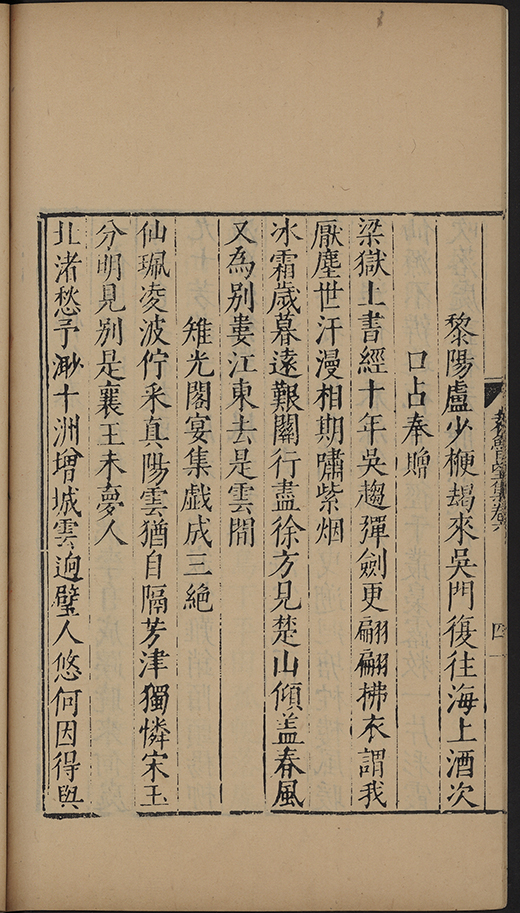 黎陽盧少楩朅來吳門復往海上酒次
口占奉贈
梁獄上書經十年吳趨彈劍更翩翩拂衣謂我
厭塵世汗漫相期嘯紫烟
冰霜歲暮遠艱關行盡徐方見楚山傾盖春風
又為別婁江東去是雲間
雉光閣宴集戯成三絶
仙珮凌波佇采真陽雲猶自隔芳津獨憐宋玉
分明見別是襄王未夢人
北渚愁予渺十洲增城雲逈璧人悠何因得與
四